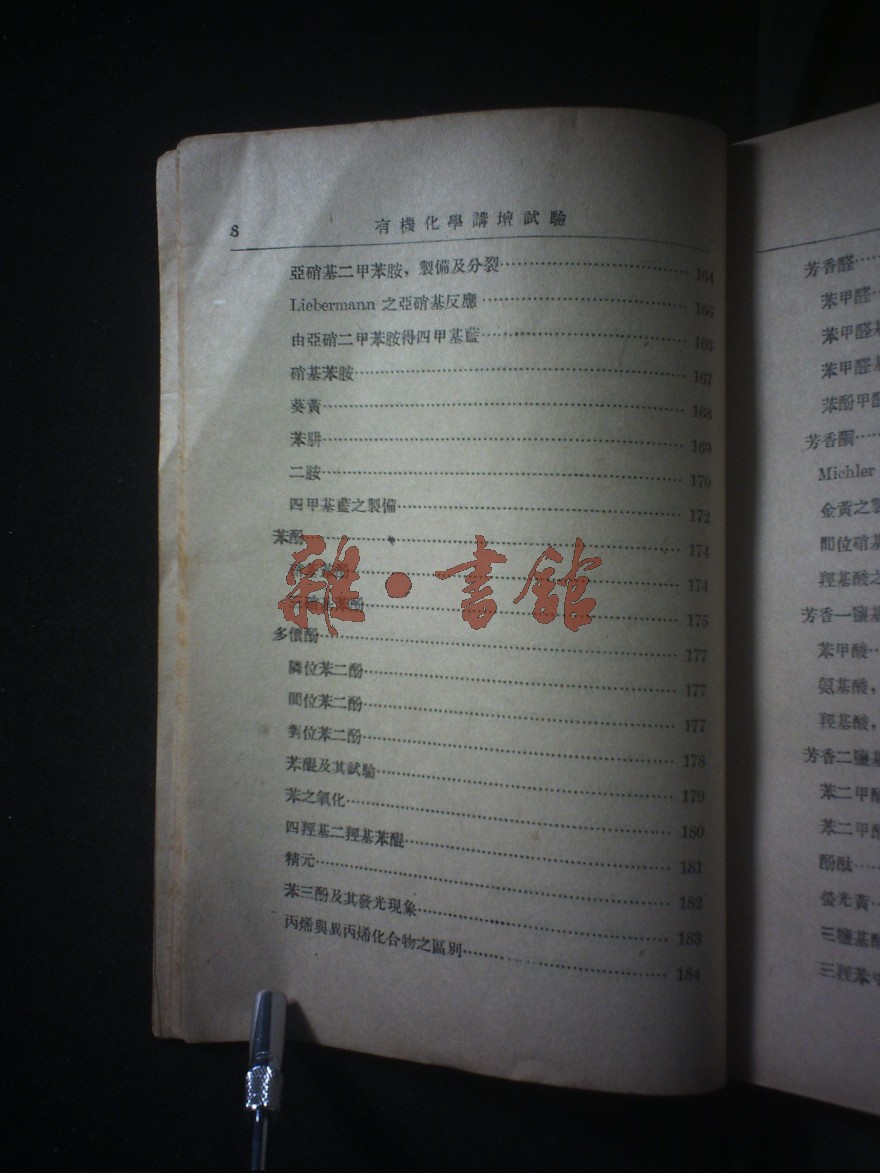 8 有機化學講壇試驗
亞硝基二甲苯胺，製備及分裂 164
Liebermann 之亞硝基反應 166
由亞硝二甲苯胺得四甲基藍 166
硝基苯胺 167
葵黃 168
苯肼 169
二胺 170
四甲基藍之製備 172
苯酚 174
酚 174
三硝基苯酚 175
多價酚 177
隣位苯二酚 177
間位苯二酚 177
對位苯二酚 178
苯醌及其試驗 179
苯之氧化 180
四羥基二羥基苯醌 181
精元 182
苯三酚及其發光現象 183
丙烯與異丙烯化合物之區別 184
雜·書館
芳香醛
苯甲醛
苯甲醛
苯甲醛
苯酚甲醛
芳香酮
Michler
金黃之
間位硝基
羥基酸之
芳香一鹽基
苯甲酸
氨基酸，
羥基酸，
芳香二鹽基
苯二甲酸
苯二甲
酚酞
螢光黃
三鹽基酸
三羥苯甲